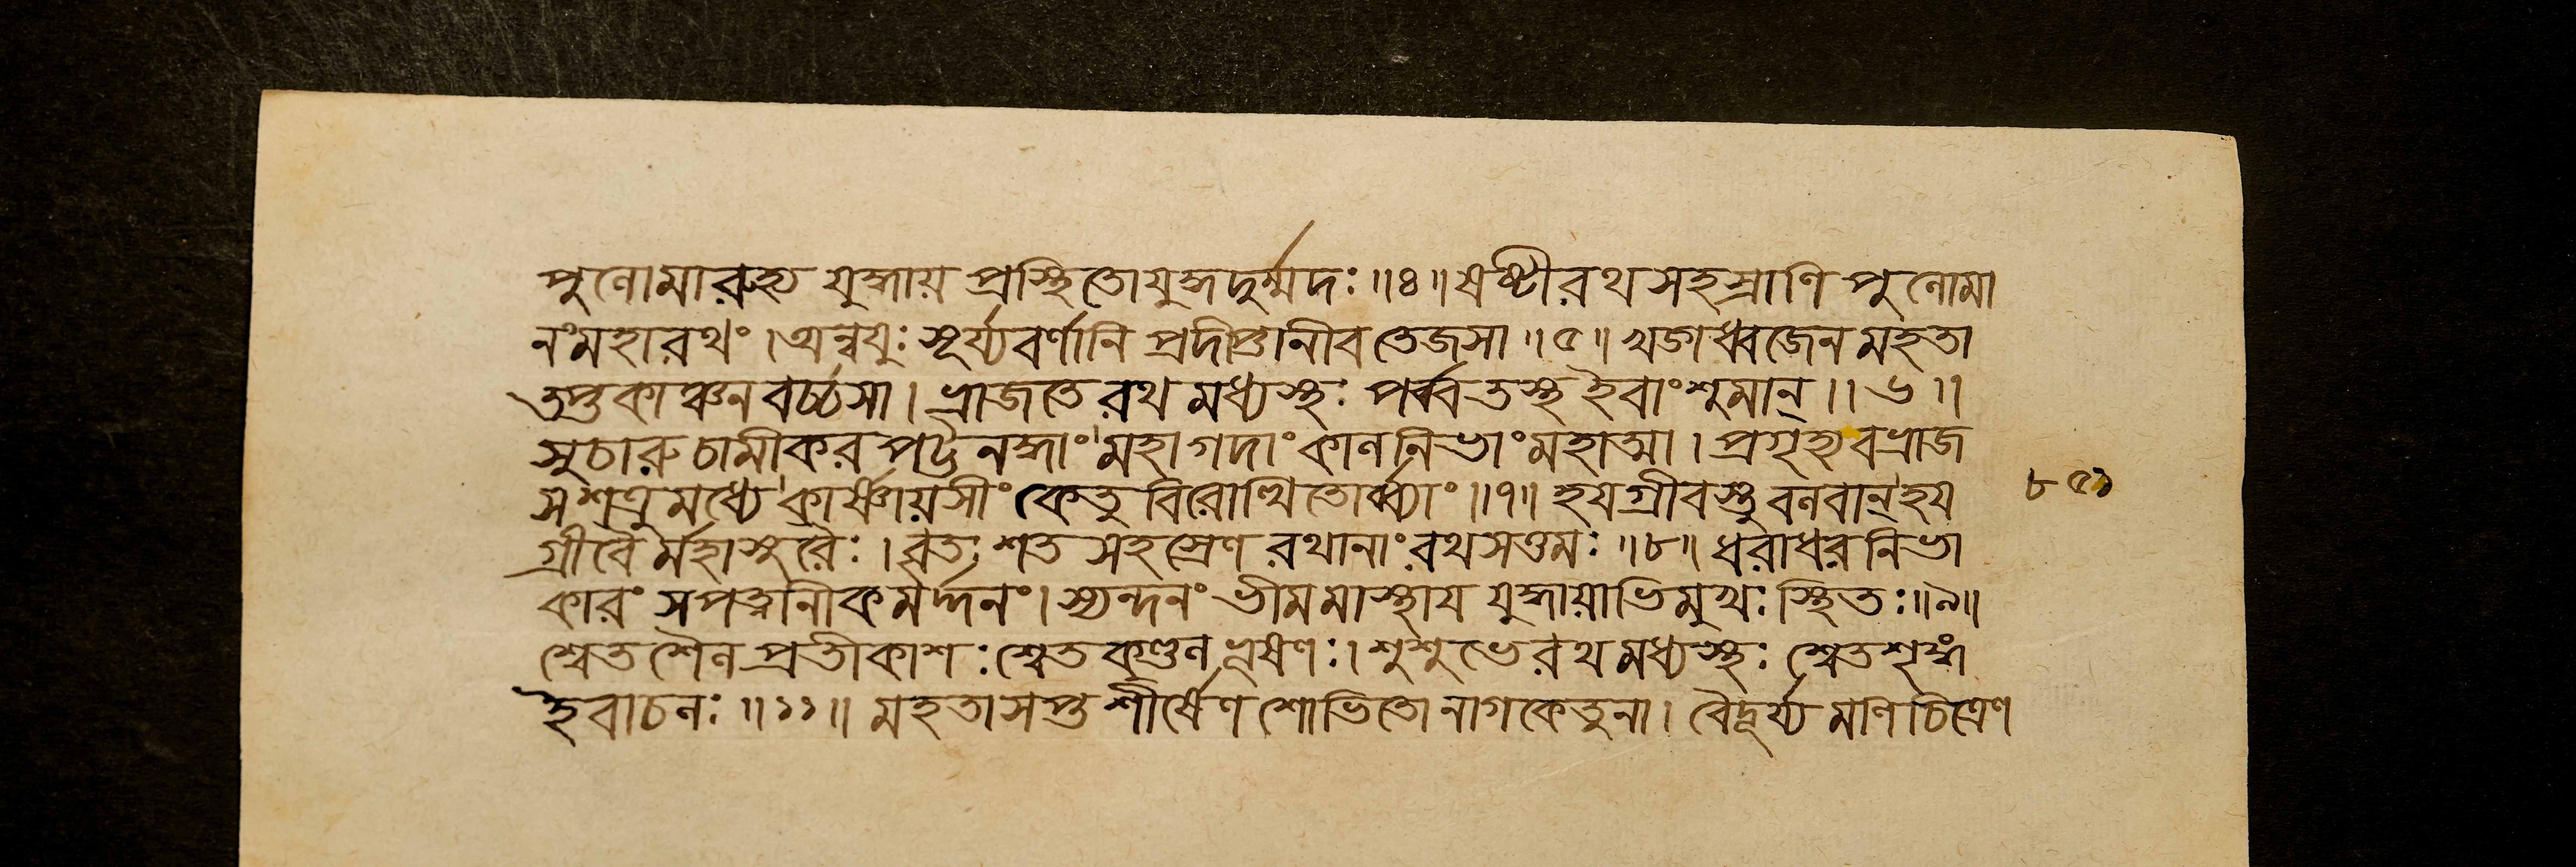 পুলোমারুহ্য যুদ্ধায় প্রস্থিতোযুদ্ধদুর্ম্মদঃ ॥৪॥ ষষ্টীরথসহস্রাণি পুলোমা
নংমহারথং । অন্বযুঃ সূর্য্যবর্ণানি প্রদীপ্তানীবতেজসা ॥৫॥ খড্গধ্বজেনমহতা
তপ্তকাঞ্চনবর্চ্চসা । ভ্রাজতে রথমধ্যস্থঃ পর্ব্বতস্থইবাংশুমান্ ॥ ৬ ॥
সুচারুচামীকরপট্টনদ্ধাং মহাগদাং কালনিভাং মহাত্মা । প্রগৃহ্যবভ্রাজ
সশত্রুমধ্যে কার্ষ্ণায়সীং কেতুবিরোত্থিতোর্ব্ব্যাং ॥৭॥ হযগ্রীবস্তুবলবান্ হয
গ্রীবৈর্মহাসুরৈঃ । বৃতঃ শতসহস্রেণ রথানাং রথসত্তমঃ ॥৮॥ ধরাধরনিভা
কারং সপত্নানীকমর্দ্দনং । স্যন্দনং ভীমমাস্থায যুদ্ধায়াভিমুখঃ স্থিতঃ ॥৯॥
শ্বেতশৈলপ্রতীকাশঃ শ্বেতকুণ্ডলভূষণঃ । শুশুভেরথমধ্যস্থঃ শ্বেতশৃঙ্গ
ইবাচলঃ ॥১১॥ মহতাসপ্তশীর্ষেণ শোভিতোনাগকেতুনা । বৈদূর্য্যমণিচিত্রেণ
৮৫১